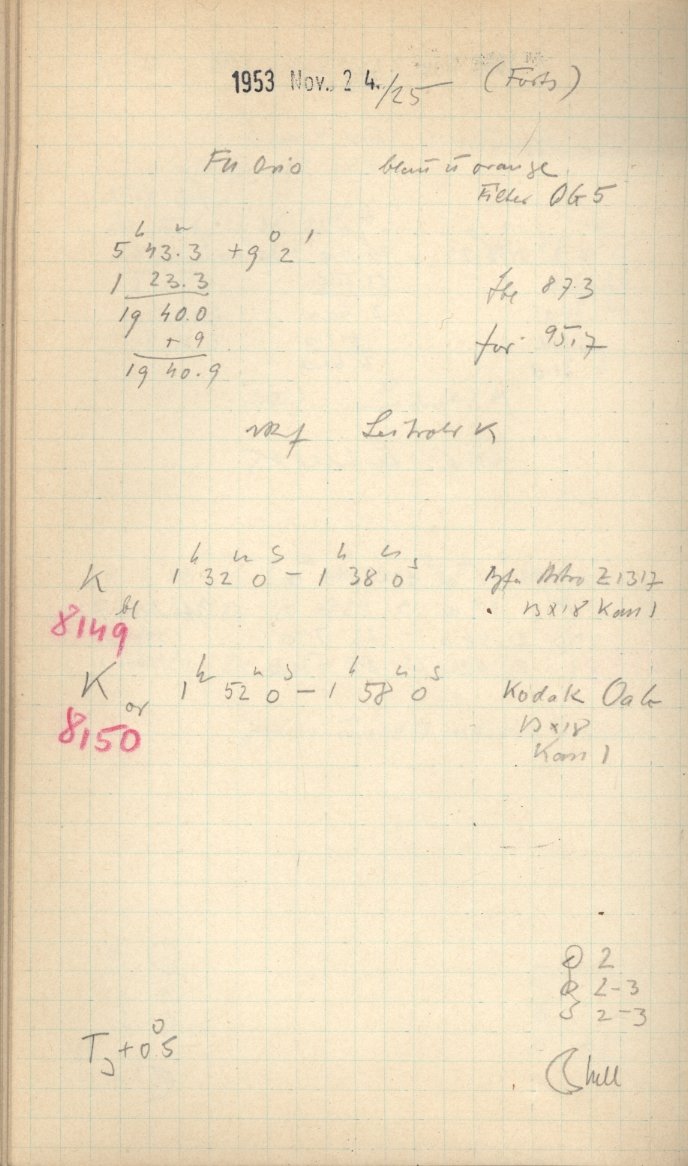 1953 Nov. 24./25 (Forts)
FU Orio blau u orange
Filter OG5
5ʰ 43.3ᵐ +9° 2'
1 23.3
19 40.0
+ 9
19 40.9
87.3
for 95.7
Leitrohr K
K 1ʰ 32ᵐ 0ˢ – 1ʰ 38ᵐ 0ˢ Agfa Astro Z1317
bl 13x18 Kass 1
8149
K or 1ʰ 52ᵐ 0ˢ – 1ʰ 58ᵐ 0ˢ Kodak OaE
8150 13x18
Kass 1
2
2-3
S 2-3
T +0°.5
hell